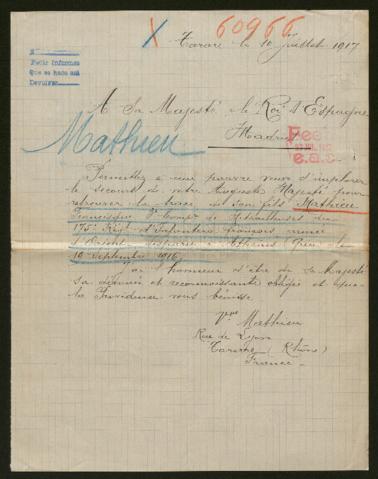 X 60966
Tarare le 10 juillet 1917
Pedir informes
Que se hace así
Devolver
A Sa Majesté le Roi d'Espagne
Madrid
Mathieu
Permettez à une pauvre mère d'implorer
le secours de votre Auguste Majesté pour
retrouver la trace de son fils Mathieu
Francisque Cie de Mitrailleuses du
175e Régt d'Infanterie français armée
d'Orient disparu à le
10 Septembre 1916
J'ai l'honneur d'être de Sa Majesté
sa dévouée et reconnaissante obligée et que
la Providence vous bénisse.
Mathieu
Rue de Lyon
Tarare (Rhône)
France